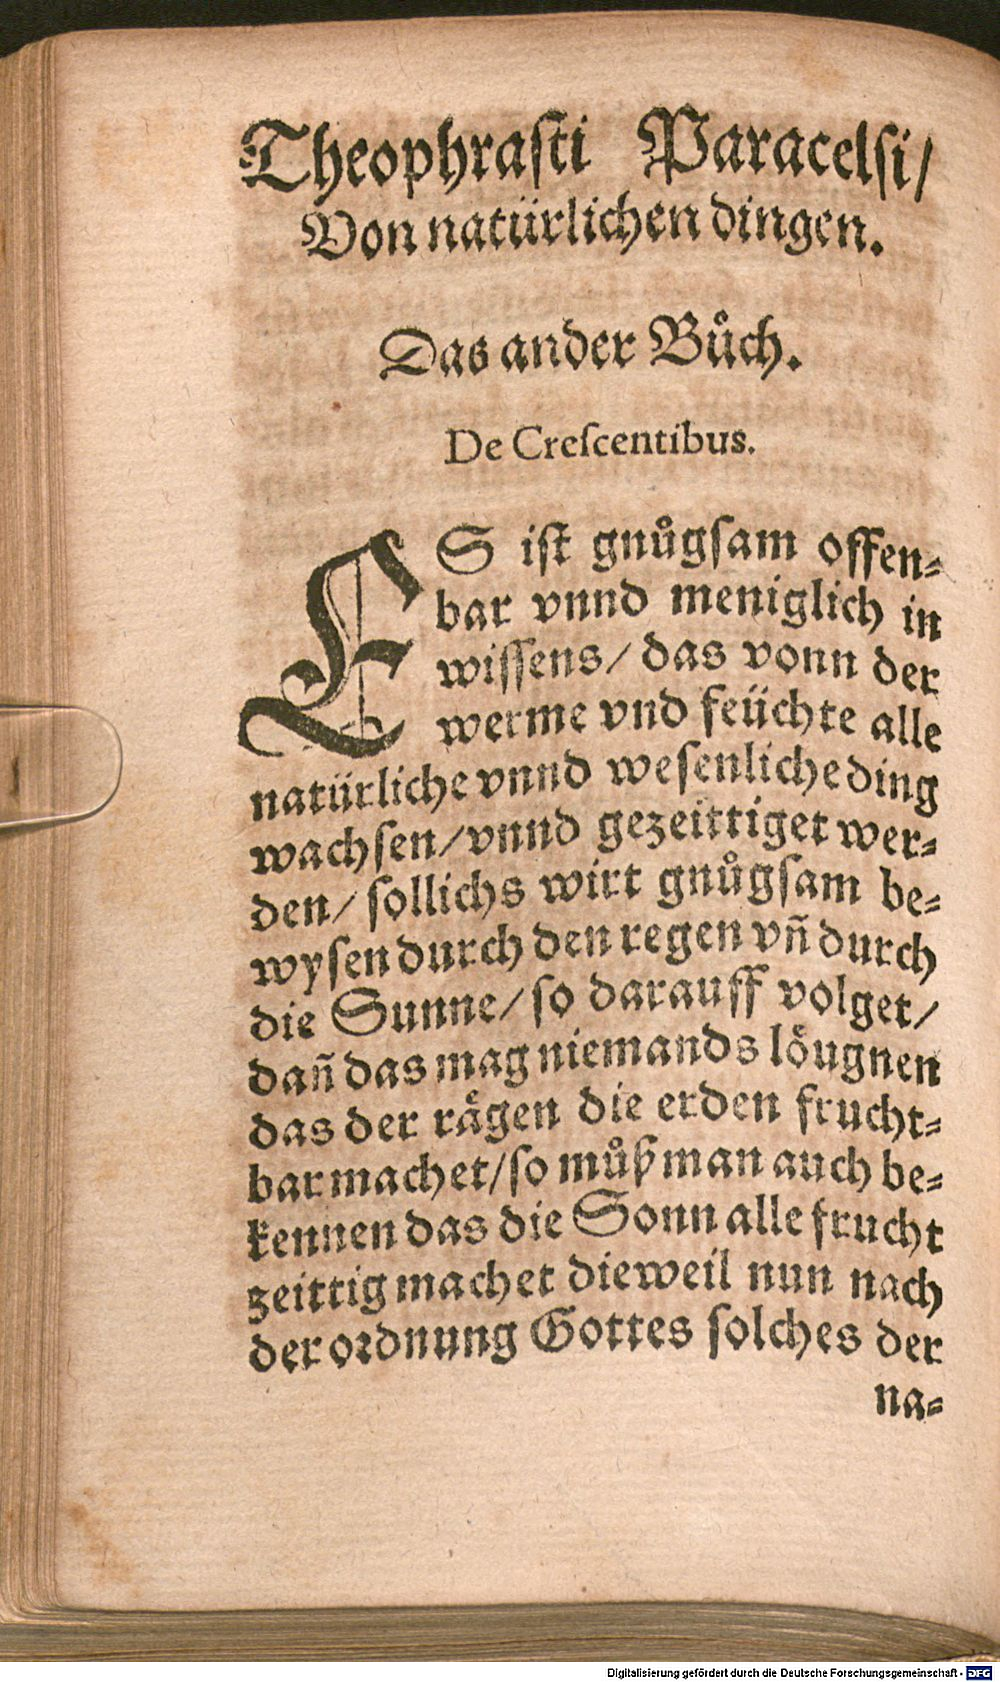 Theophrasti Paracelsi/
Von natürlichen dingen.
Das ander Bůch.
De Creſcentibus.
ES iſt gnůgſam offen⸗
bar vnnd meniglich in
wiſſens/ das vonn der
werme vnd feüchte alle
natürliche vnnd weſenliche ding
wachſen/vnnd gezeittiget wer⸗
den/ ſollichs wirt gnůgſam be⸗
wyſen durch den regen vn̄ durch
die Sunne/ ſo darauff volget/
dan̄ das mag niemands löugnen
das der rägen die erden frucht⸗
bar machet/ſo můß man auch be⸗
kennen das die Sonn alle frucht
zeittig machet dieweil nun nach
der oꝛdnung Gottes ſolches der
na⸗
Digitalisierung gefördert durch die Deutsche Forschungsgemeinschaft - DFG